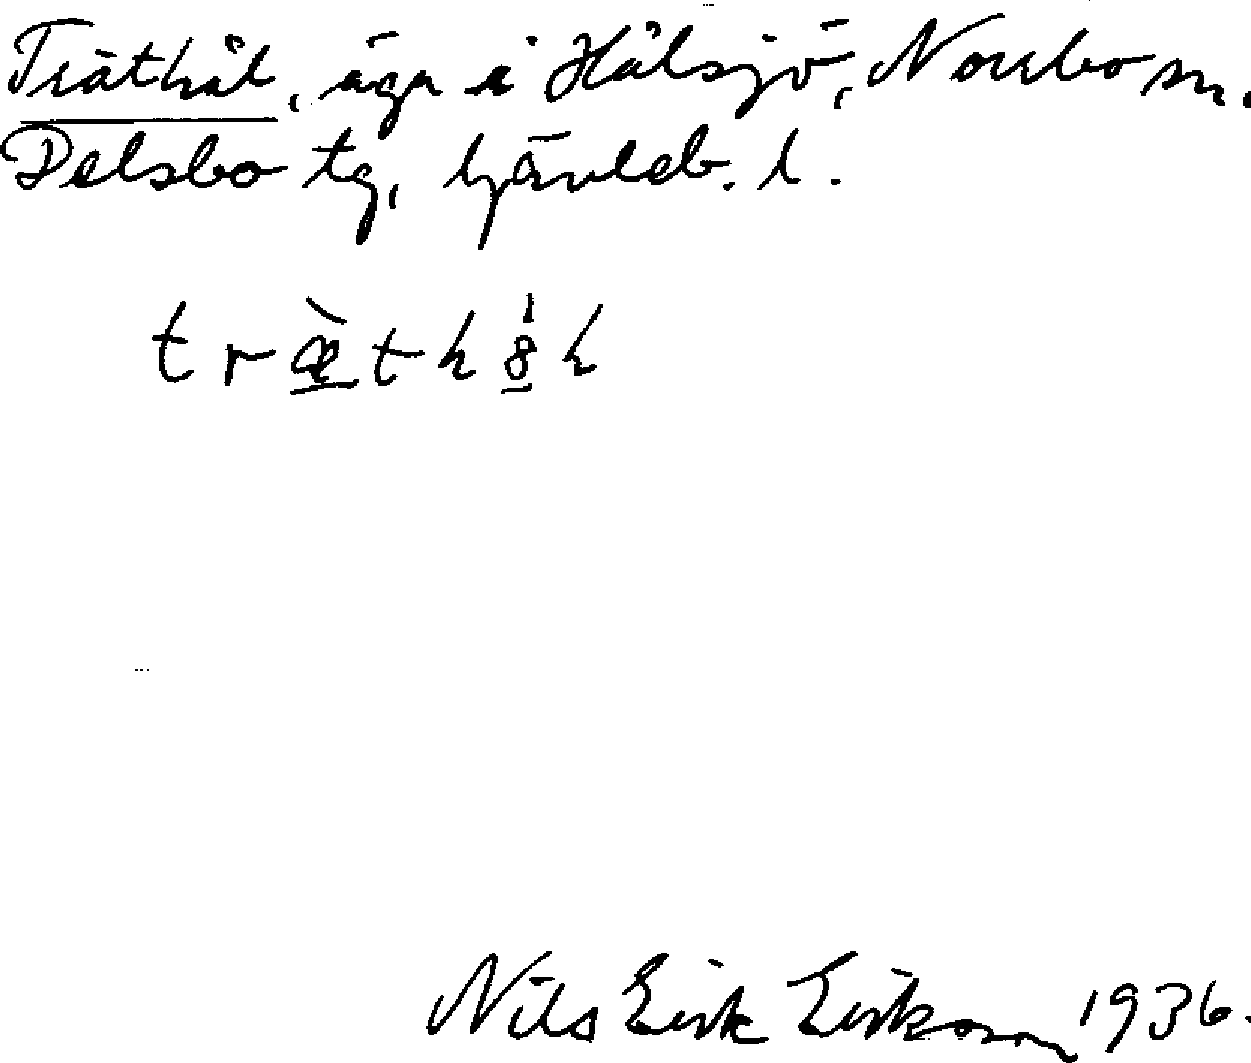 Träthål, äga i Hålsjö, Norrbo sn.
Delsbo tg, Gävleb. l.
Nils Erik Eriksson 1936.